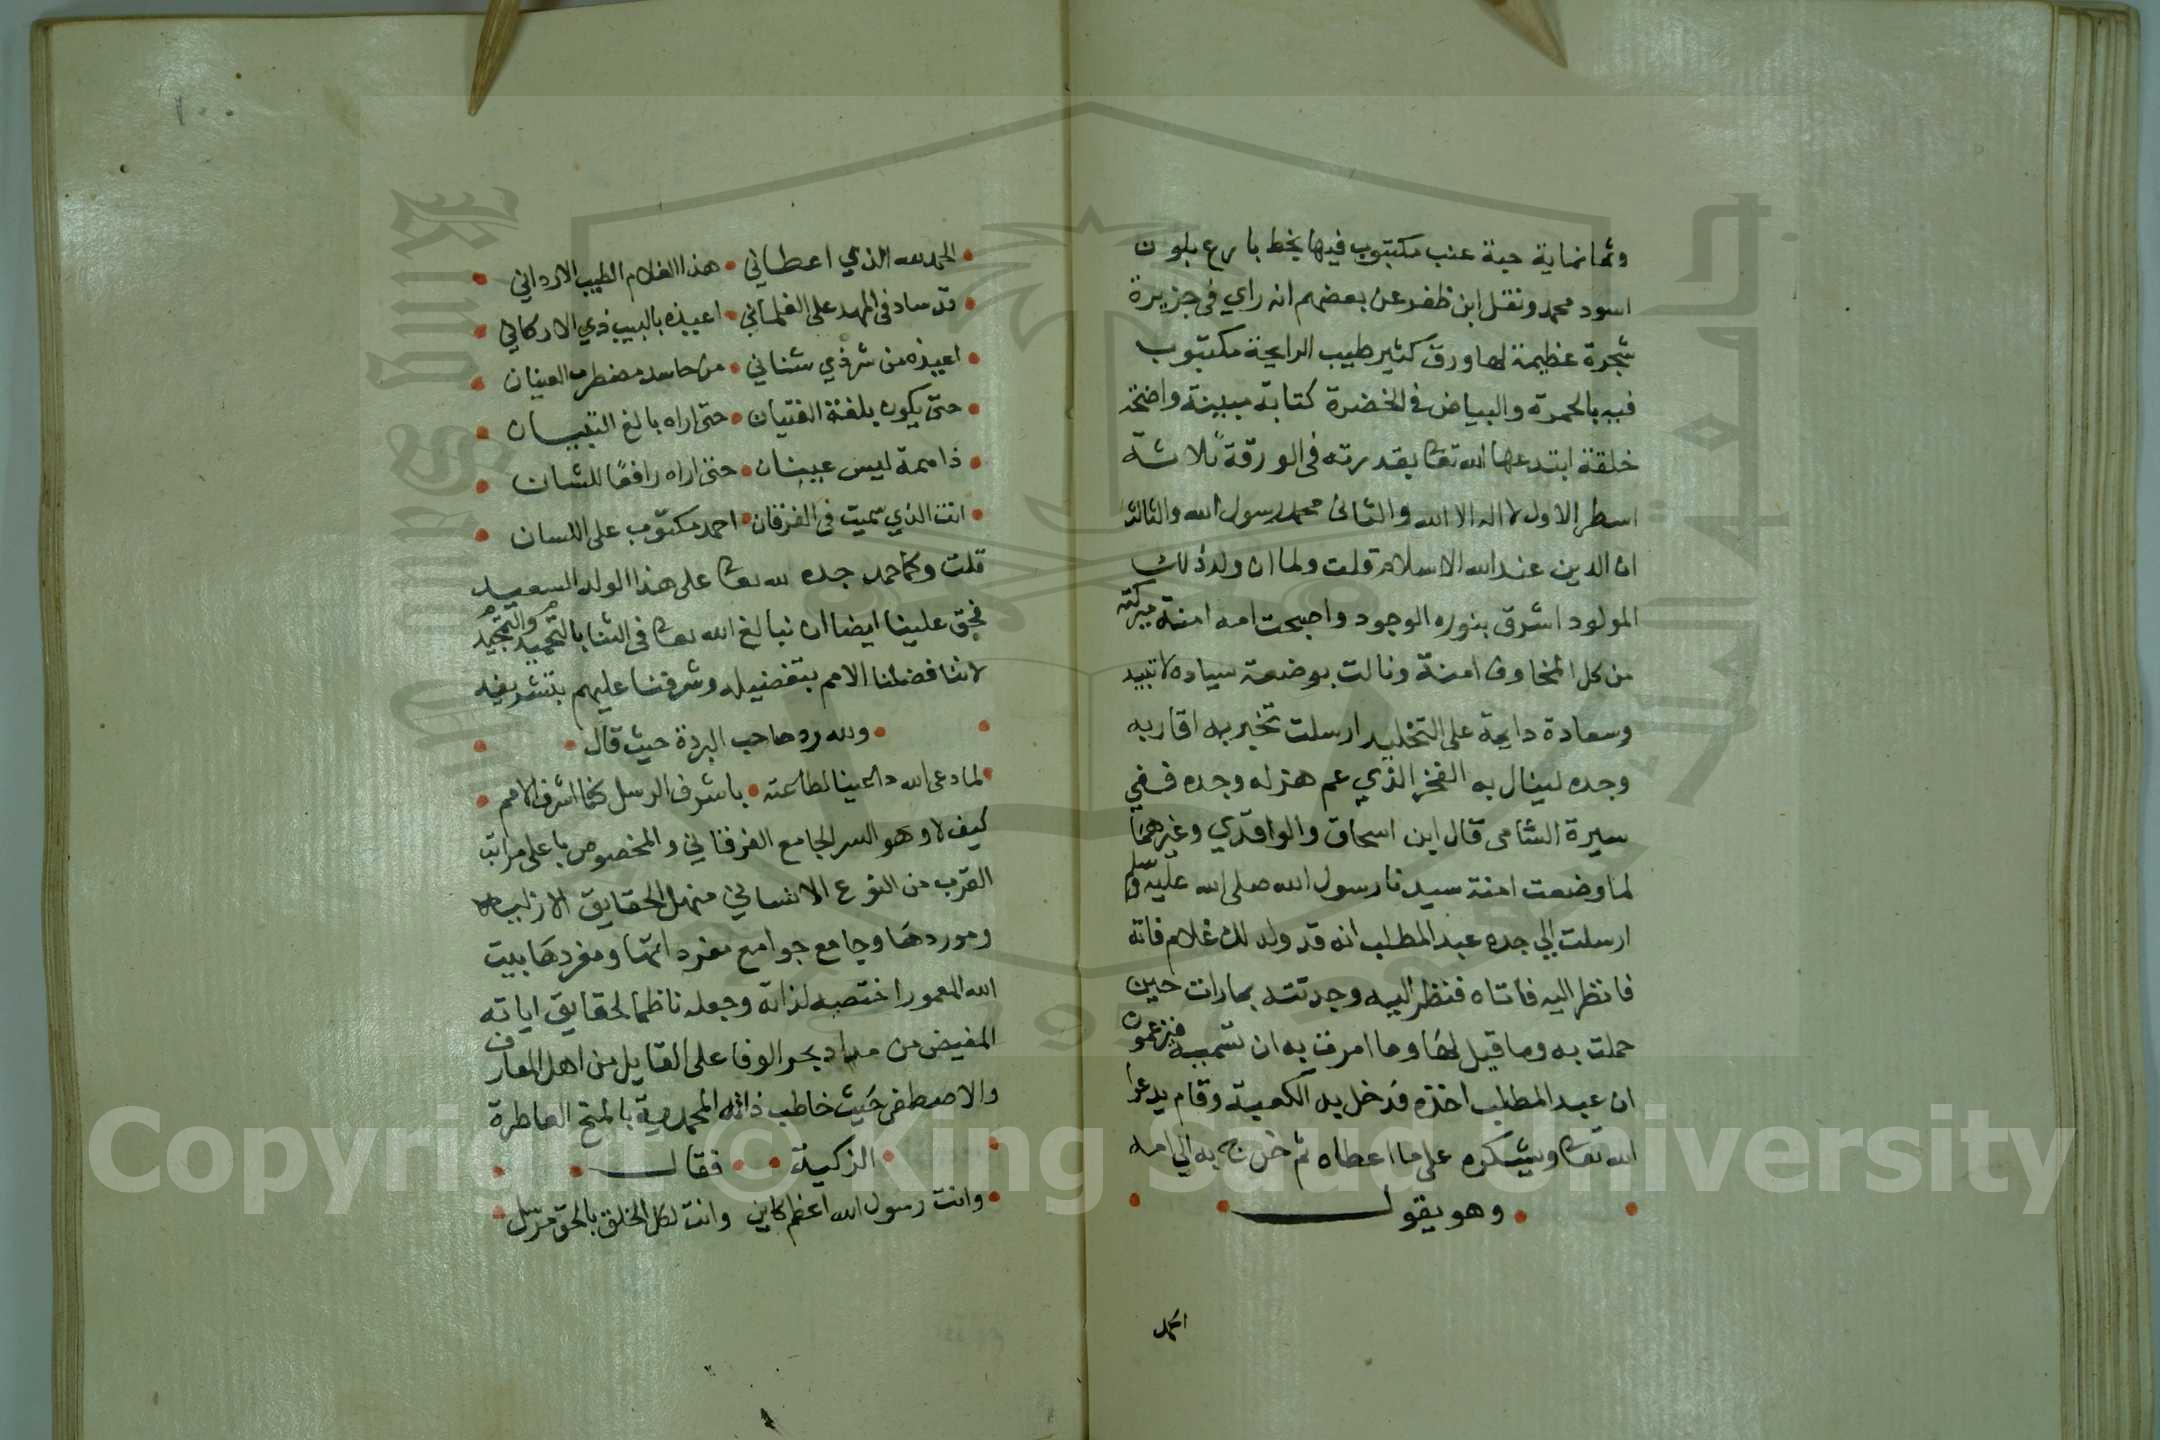 وثمانماية حبة عنب مكتوب فيها بخط بارع بلون
اسود محمد ونقل ابن ظفر عن بعضهم انه راي في جزيرة
شجرة عظيمة لها ورق كثير طيب الرايحة مكتوب
فيه بالحمرة والبياض في الخضرة كتابة مبينة واضحة
خلقة ابتدعها الله تعا بقدرته في الورقة ثلاثة
اسطر الاول لا اله الا الله والثاني محمد رسول الله والثالث
ان الدين عند الله الاسلام قلت ولما ان ولد ذلك
المولود اشرق بنوره الوجود واصبحت امه امنة ببركته
من كل المخاوف امنة ونالت بوضعه سيادة لا تبيد
وسعادة دايمة على التخليد ارسلت تخبر به اقاربه
وجده لينال به الفخر الذي عم هزله وجده ففي
سيرة الشامي قال ابن اسحاق والواقدي وغيرهما
لما وضعت امنة سيدنا رسول الله صلى الله عليه وسلم
ارسلت الي جده عبد المطلب انه قد ولد لك غلام فاته
فانظر اليه فاتاه فنظر اليه وحدثته بما رات حين
حملت به وما قيل لها وما امرت به ان تسميه فيزعمون
ان عبد المطلب اخذه فدخل به الكعبة وقام يدعوا
الله تعا ويشكره على ما اعطاه ثم خرج به الي امه
وهو يقول
الحمد
١٠٠
الحمد لله الذي اعطاني هذا الغلام الطيب الارداني
قد ساد في المهد على الغلماني اعيذه بالبيت ذي الاركاني
اعيذه من شر ذي شناني من حاسد مضطرب العينان
حتى يكون بلغة الفتيان حتى اراه بالغ التبيان
ذا همة ليس عينان حتى اراه رافعا للشان
انت الذي سميت في الفرقان احمد مكتوب على اللسان
قلت وكما حمد جده لله تعا على هذا الولد السعيد
فحق علينا ايضا ان نبالغ الله تعا في الثنا بالتحميد والتمجيد
لاننا فضلنا الامم بتفضيله وشرفنا عليهم بتشريفه
ولله در صاحب البردة حيث قال
لما دعى الله داعينا لطاعته باشرف الرسل كنا اشرف الامم
كيف لا وهو السر الجامع الفرقاني والمخصوص باعلى مراتب
القرب من النوع الانساني منهل الحقايق الازلية
وموردها وجامع جوامع مفرداتها ومفردها بيت
الله المعمور اختصه لذاته وجعله ناظما لحقايق اياته
المفيض من مداد بحر الوفا على القايل من اهل المعارف
والاصطفى حيث خاطب ذاته المحمدية بالمنح العاطرة
الزكية فقال
وانت رسول الله اعظم كاين وانت لكل الخلق بالحق مرسل
Copyright © King Saud University
King Saud University